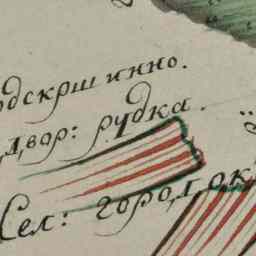 одскршинно.
двор: рудка.
Сел: городок